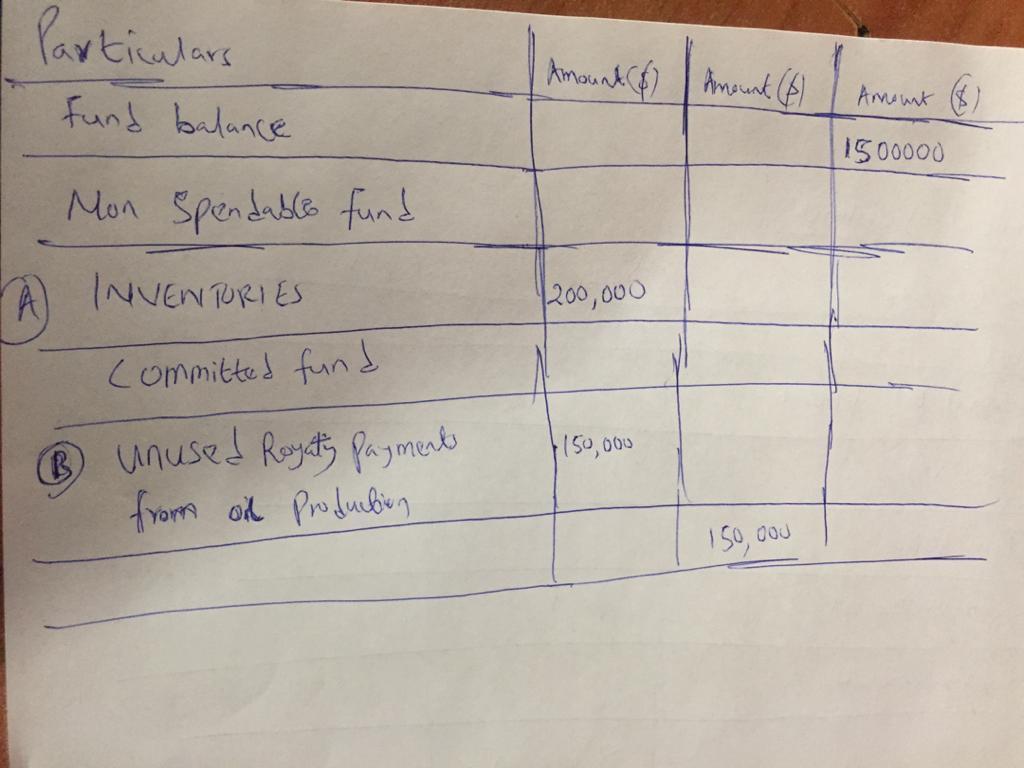 Particulars Amount($) Amount($) Amount ($)
Fund balance 1500000
Non Spendable fund
A INVENTORIES 200,000
Committed fund
B Unused Royalty Payments 150,000
from oil Production
150,000